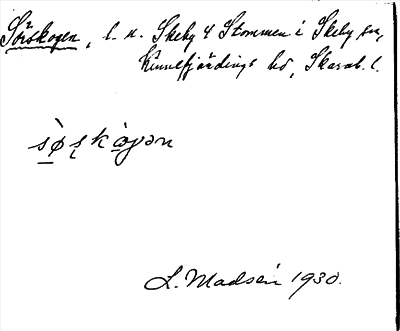 Sörskogen, l. n. Skeby 4 Stommen i Skeby sn,
Kinnefjärdings hd, Skarab. l.
sø̀skògən
L. Madsén 1930.